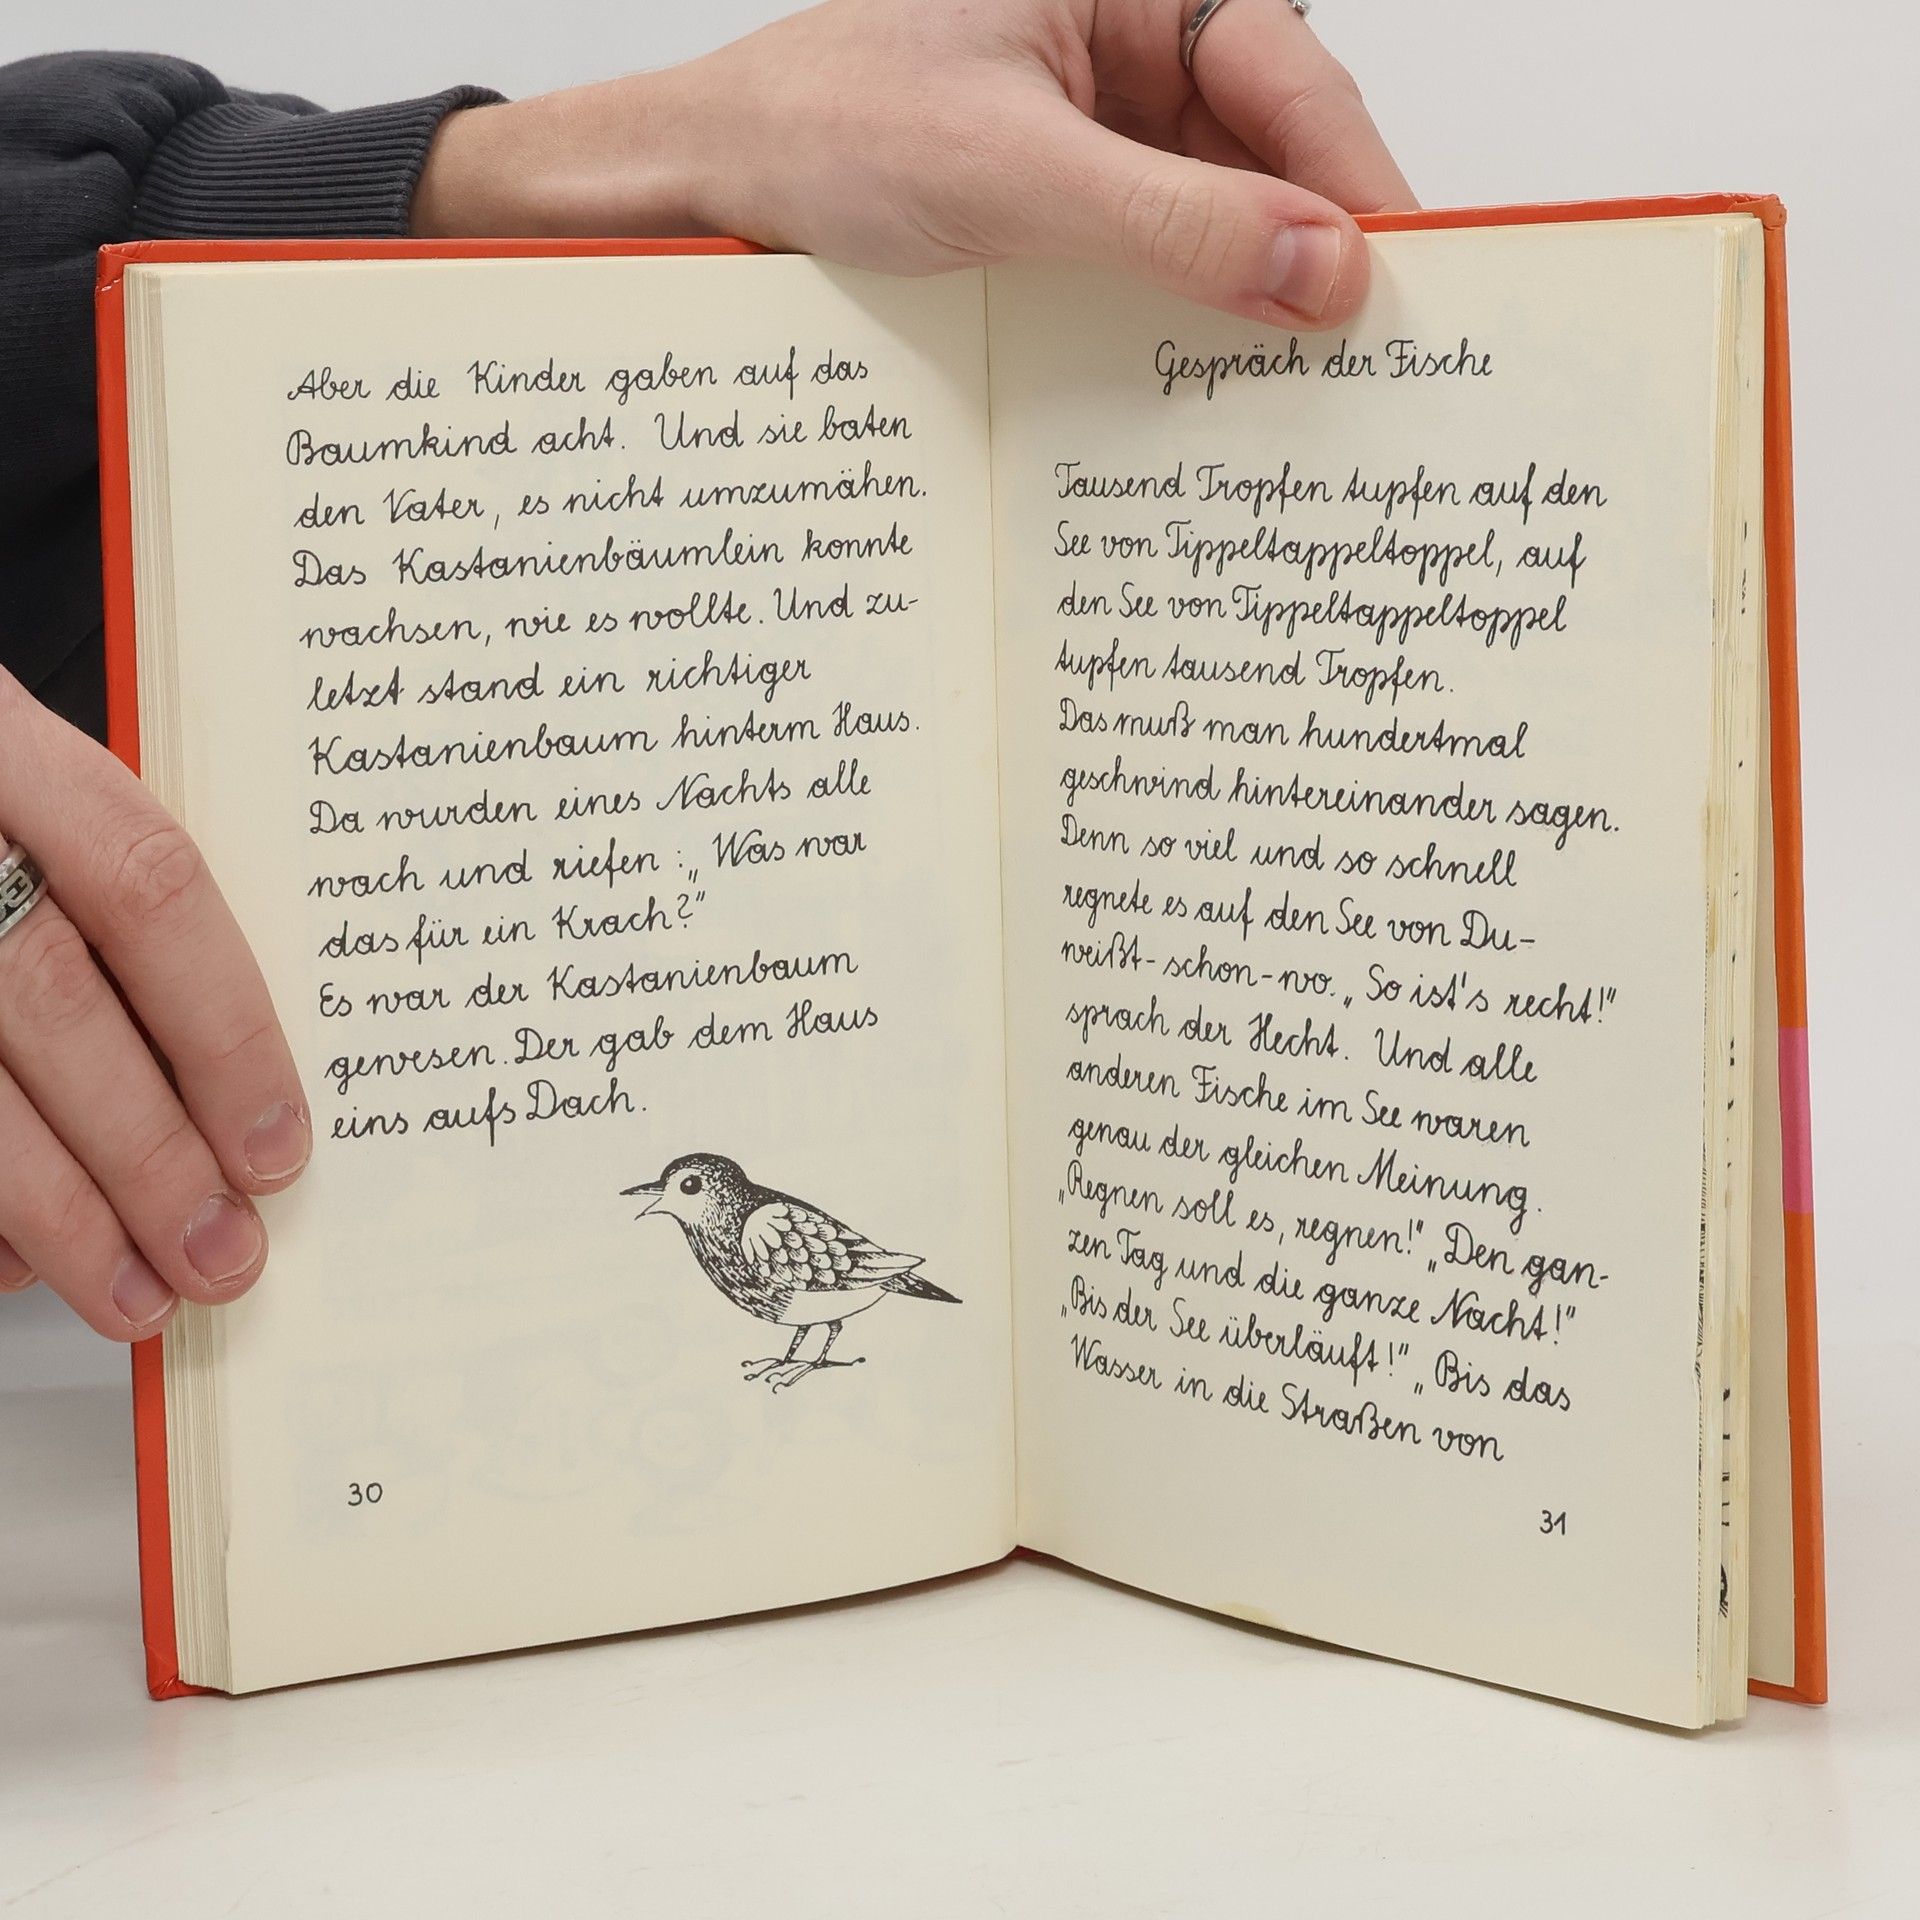 Aber die Kinder gaben auf das
Baumkind acht. Und sie baten
den Vater, es nicht umzumähen.
Das Kastanienbäumlein konnte
wachsen, wie es wollte. Und zu-
letzt stand ein richtiger
Kastanienbaum hinterm Haus.
Da wurden eines Nachts alle
wach und riefen: „Was war
das für ein Krach?"
Es war der Kastanienbaum
gewesen. Der gab dem Haus
eins aufs Dach.
30
Gespräch der Fische
Tausend Tropfen tupfen auf den
See von Tippeltappeltoppel, auf
den See von Tippeltappeltoppel
tupfen tausend Tropfen.
Das muß man hundertmal
geschwind hintereinander sagen.
Denn so viel und so schnell
regnete es auf den See von Du-
weißt-schon-wo. „So ist's recht!"
sprach der Hecht. Und alle
anderen Fische im See waren
genau der gleichen Meinung.
„Regnen soll es, regnen!" „Den gan-
zen Tag und die ganze Nacht!"
„Bis der See überläuft!" „Bis das
Wasser in die Straßen von
31